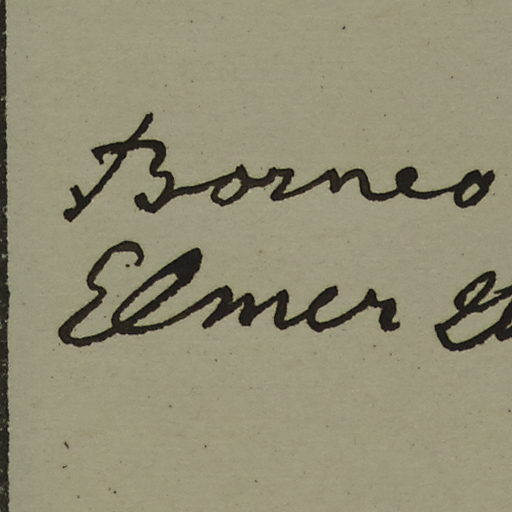 Borneo
Elmer